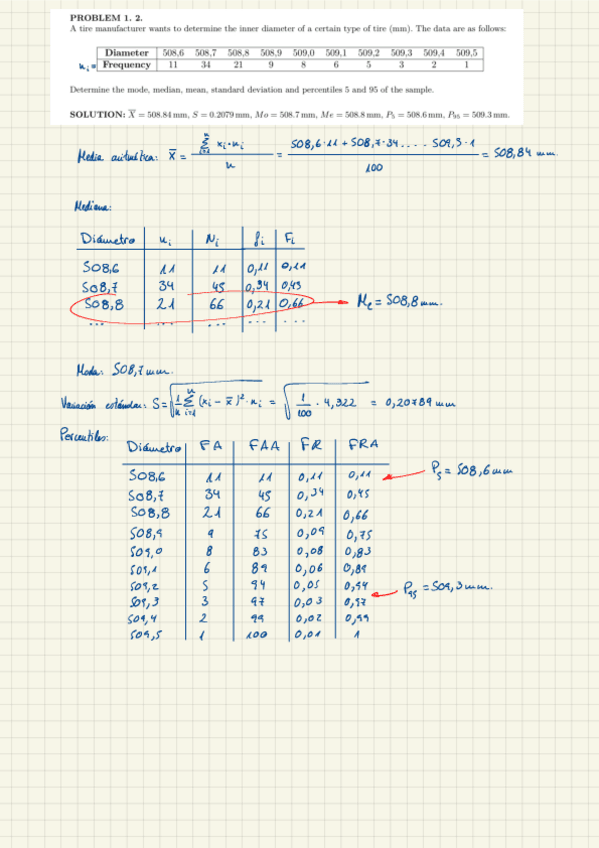 PROBLEM 1. 2.
A tire manufacturer wants to determine the inner diameter of a certain type of tire (mm). The data are as follows:
Diameter 508,6 508,7 508,8 508,9 509,0 509,1 509,2 509,3 509,4 509,5
nᵢ = Frequency 11 34 21 9 8 6 5 3 2 1
Determine the mode, median, mean, standard deviation and percentiles 5 and 95 of the sample.
SOLUTION: X̅ = 508.84 mm, S = 0.2079 mm, Mo = 508.7 mm, Me = 508.8 mm, P₅ = 508.6 mm, P₉₅ = 509.3 mm.
Media aritmética: X̅ = Σ xᵢ·nᵢ / n = 508,6·11 + 508,7·34 .... 509,5·1 / 100 = 508,84 mm.
Mediana:
Diámetro nᵢ Nᵢ fᵢ Fᵢ
508,6 11 11 0,11 0,11
508,7 34 45 0,34 0,45
508,8 21 66 0,21 0,66 Mₑ = 508,8 mm.
... ... ... ...
Moda: 508,7 mm.
Variación estándar: S = √(1/n Σ (xᵢ - x̅)² · nᵢ) = √(1/100 · 4,322) = 0,20789 mm
Percentiles:
Diámetro FA FAA FR FRA
508,6 11 11 0,11 0,11 P₅ = 508,6 mm
508,7 34 45 0,34 0,45
508,8 21 66 0,21 0,66
508,9 9 75 0,09 0,75
509,0 8 83 0,08 0,83
509,1 6 89 0,06 0,89
509,2 5 94 0,05 0,94 P₉₅ = 509,3 mm.
509,3 3 97 0,03 0,97
509,4 2 99 0,02 0,99
509,5 1 100 0,01 1